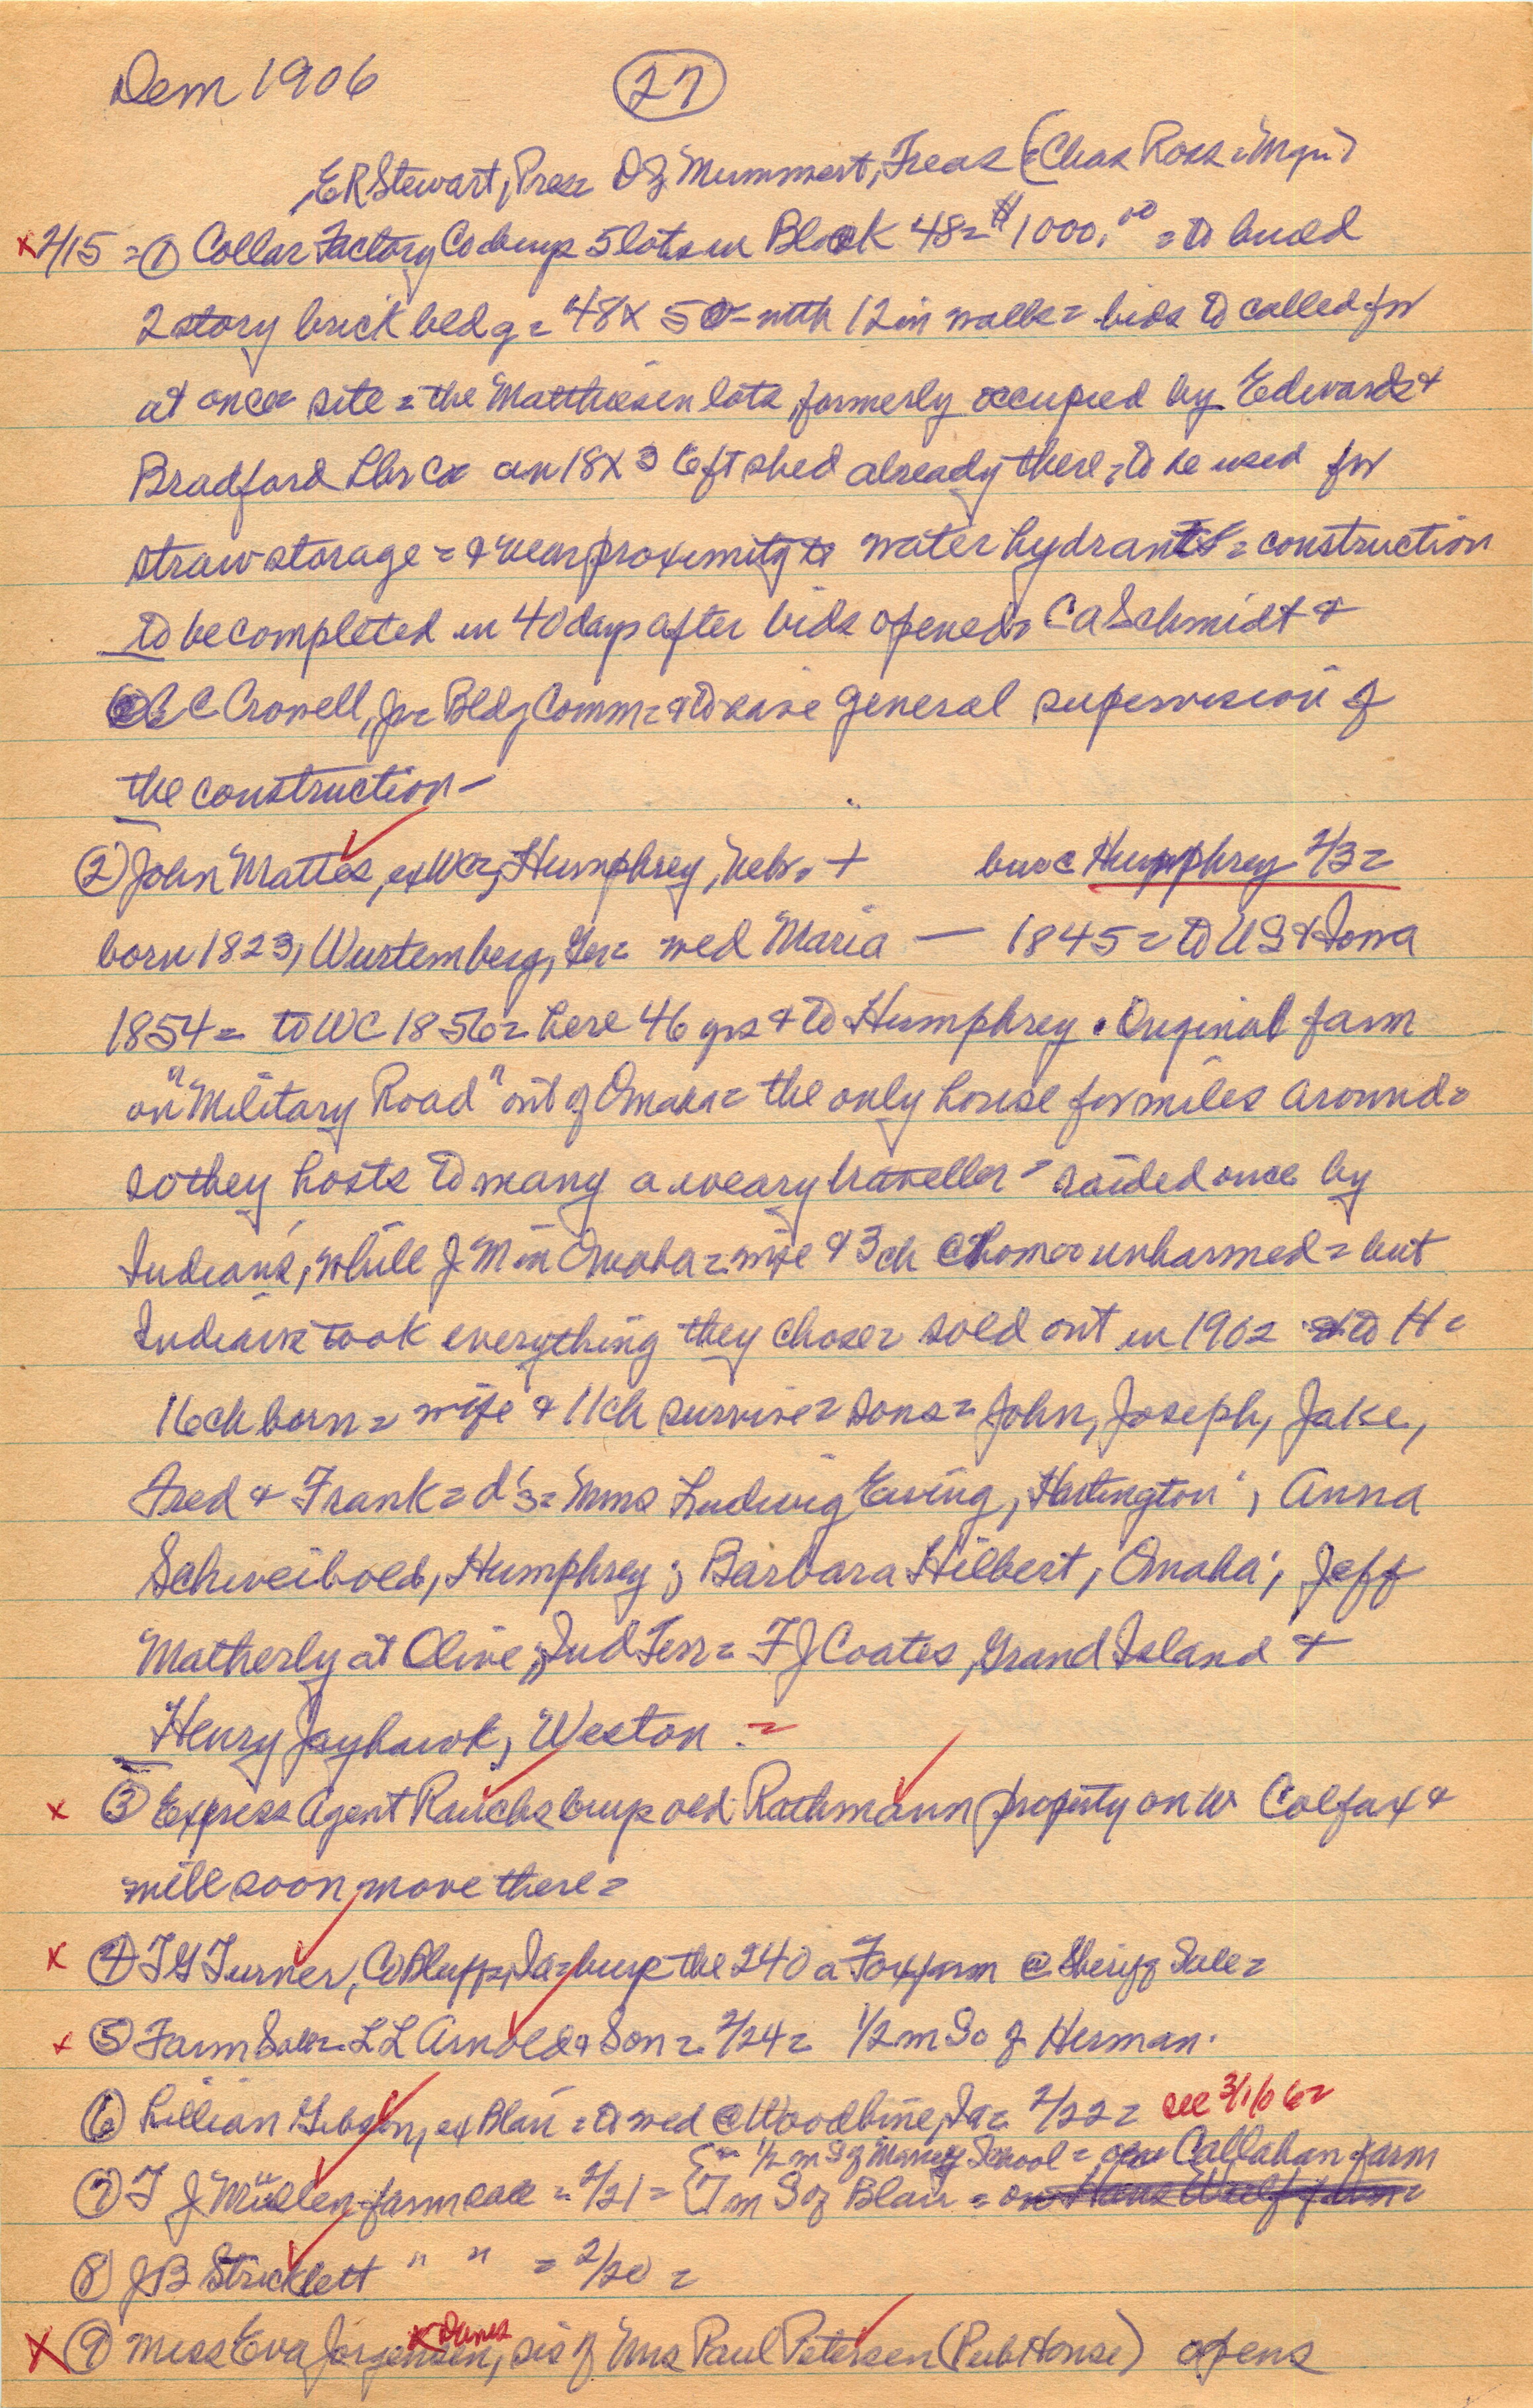 Dem 1906 (27)
ER Stewart, Pres = D Z Mummert, Treas (Chas Ross = Mgr)
x 2/15 = ① Collar Factory Co buys 5 lots in Block 48 = $1000.00 = to build
2 story brick bldg = 48 x 50 - with 12 in walls = bids to called for
at once = site = the Matthiesen lots, formerly occupied by Edwards &
Bradford Lbr Co = an 18 x 36 ft shed already there = to be used for
straw storage = & near proximity to water hydrants = construction
to be completed in 40 days after bids opened = C A Schmidt &
C C Crowell, Jr = Bldg Comm = & to have general supervision of
the construction -
② John Mattes, ex WC, Humphrey, Nebr. + bur @ Humphrey 2/3 =
born 1823, Wurtemberg, Ger = wed Maria — 1845 = to US & Iowa
1854 = to WC 1856 = here 46 yrs & to Humphrey. Original farm
on "Military Road" out of Omaha = the only house for miles around =
so they hosts to many a weary traveller = raided once by
Indians, while J M in Omaha = wife & 3 ch @ home = unharmed = but
Indians took everything they chose = sold out in 1902 & to H =
16 ch born = wife & 11 ch survive = sons = John, Joseph, Jake,
Fred & Frank = d's = Mms Ludwig Ewing, Hartington; Anna
Schweibold, Humphrey; Barbara Hilbert, Omaha; Jeff
Matherly at Olive, Ind Terr = F J Coates, Grand Island &
Henry Jayhawk, Weston =
x ③ Express Agent Rauchs buys old Rathmann property on W Colfax &
will soon move there =
x ④ T G Turner, Co Bluffs, Ia = buys the 240 a Fox farm @ Sheriff Sale =
x ⑤ Farm Sale = L L Arnold & Son = 2/24 = 1/2 m So of Herman.
⑥ Lillian Gibson, ex Blair = to wed @ Woodbine, Ia = 2/22 = see 3/1/06 =
1/2 m S of Marney School = on Callahan farm
⑦ T J Mullen farm sale = 2/21 = 7 m S of Blair = on Hans Wulf farm =
⑧ J B Stricklett " " = 2/20 =
x ⑨ Miss Eva Jorgensen, sis of Mrs Paul Petersen (Pub House) opens